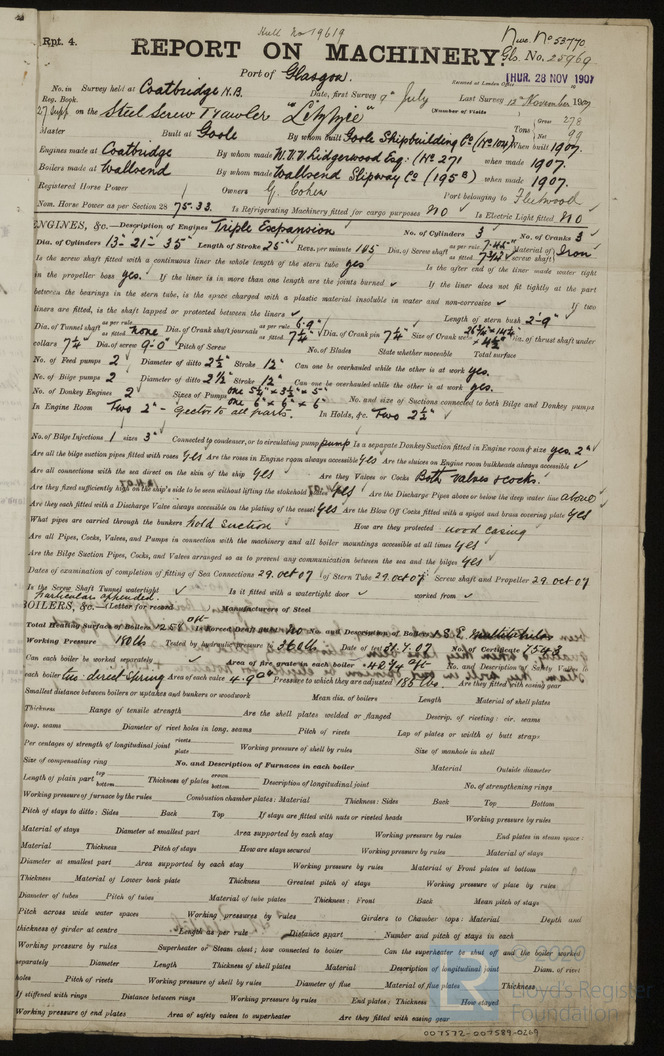 Hull No 19619
Nwc. No 53770
Rpt. 4.
REPORT ON MACHINERY.
Glo. No. 25969
Port of Glasgow.
Received at London Office THUR. 28 NOV 1907
No. in Survey held at Coatbridge N.B. Date, first Survey 9th July Last Survey 12th November 1907
Reg. Book. (Number of Visits
27 Supp on the Steel Screw Trawler "Lizzie" Tons Gross 278 Net 99
Master Built at Goole By whom built Goole Shipbuilding Co (No 104) When built 1907.
Engines made at Coatbridge By whom made W. V. V. Lidgerwood Esq. (No 271 when made 1907.
Boilers made at Wallsend By whom made Wallsend Slipway Co (195 ) when made 1907.
Registered Horse Power Owners G. Cohen Port belonging to Fleetwood
Nom. Horse Power as per Section 28 75.33. Is Refrigerating Machinery fitted for cargo purposes No Is Electric Light fitted No
ENGINES, &c.—Description of Engines Triple Expansion No. of Cylinders 3 No. of Cranks 3
Dia. of Cylinders 13"-21"-35" Length of Stroke 25" Revs. per minute 105 Dia. of Screw shaft as per rule 7.45" as fitted 7 1/2" Material of screw shaft Iron
Is the screw shaft fitted with a continuous liner the whole length of the stern tube yes Is the after end of the liner made water tight
in the propeller boss yes. If the liner is in more than one length are the joints burned ✓ If the liner does not fit tightly at the part
between the bearings in the stern tube, is the space charged with a plastic material insoluble in water and non-corrosive ✓ If two
liners are fitted, is the shaft lapped or protected between the liners ✓ Length of stern bush 2'-9"
Dia. of Tunnel shaft as per rule as fitted None Dia. of Crank shaft journals as per rule 6.9" as fitted 7 1/4" Dia. of Crank pin 7 1/4 Size of Crank webs Dia. of thrust shaft under
collars 7 1/4 Dia. of screw 9'-0 Pitch of Screw No. of Blades State whether moveable Total surface
No. of Feed pumps 2 Diameter of ditto 2 1/2" Stroke 12" Can one be overhauled while the other is at work yes.
No. of Bilge pumps 2 Diameter of ditto 2 1/2" Stroke 12" Can one be overhauled while the other is at work yes.
No. of Donkey Engines 2 Sizes of Pumps one 5 1/4" x 3 1/2" x 5" one 6" x 6" x 6" No. and size of Suctions connected to both Bilge and Donkey pumps
In Engine Room Two 2" - Ejector to all parts. In Holds, &c. Two 2 1/2"
No. of Bilge Injections 1 sizes 3" Connected to condenser, or to circulating pump pump Is a separate Donkey Suction fitted in Engine room & size yes. 2"
Are all the bilge suction pipes fitted with roses Yes Are the roses in Engine room always accessible Yes Are the sluices on Engine room bulkheads always accessible ✓
Are all connections with the sea direct on the skin of the ship Yes Are they Valves or Cocks Both valves & cocks.
Are they fixed sufficiently high on the ship's side to be seen without lifting the stokehold Yes Are the Discharge Pipes above or below the deep water line above
Are they each fitted with a Discharge Valve always accessible on the plating of the vessel Yes Are the Blow Off Cocks fitted with a spigot and brass covering plate Yes
What pipes are carried through the bunkers hold suction How are they protected wood casing
Are all Pipes, Cocks, Valves, and Pumps in connection with the machinery and all boiler mountings accessible at all times Yes
Are the Bilge Suction Pipes, Cocks, and Valves arranged so as to prevent any communication between the sea and the bilges Yes
Dates of examination of completion of fitting of Sea Connections 29. Oct 07 of Stern Tube 29. Oct 07. Screw shaft and Propeller 29. Oct 07
Is the Screw Shaft Tunnel watertight ✓ Is it fitted with a watertight door ✓ worked from ✓
Particulars appended.
BOILERS, &c.— (Letter for record Manufacturers of Steel
Total Heating Surface of Boilers Is Forced Draft fitted No No. and Description of Boilers
Working Pressure 180 lbs Tested by hydraulic pressure to 360 lbs Date of test 21.7.07 No. of Certificate 7543
Can each boiler be worked separately ✓ Area of fire grate in each boiler 42 3/4 No. and Description of Safety Valves to
each boiler direct Spring Area of each valve 4.9 Pressure to which they are adjusted 185 lbs. Are they fitted with easing gear
Smallest distance between boilers or uptakes and bunkers or woodwork Mean dia. of boilers Length Material of shell plates
Thickness Range of tensile strength Are the shell plates welded or flanged Descrip. of riveting: cir. seams
long. seams Diameter of rivet holes in long. seams Pitch of rivets Lap of plates or width of butt straps
Per centages of strength of longitudinal joint rivets plate Working pressure of shell by rules Size of manhole in shell
Size of compensating ring No. and Description of Furnaces in each boiler Material Outside diameter
Length of plain part top bottom Thickness of plates crown bottom Description of longitudinal joint No. of strengthening rings
Working pressure of furnace by the rules Combustion chamber plates: Material Thickness: Sides Back Top Bottom
Pitch of stays to ditto: Sides Back Top If stays are fitted with nuts or riveted heads Working pressure by rules
Material of stays Diameter at smallest part Area supported by each stay Working pressure by rules End plates in steam space:
Material Thickness Pitch of stays How are stays secured Working pressure by rules Material of stays
Diameter at smallest part Area supported by each stay Working pressure by rules Material of Front plates at bottom
Thickness Material of Lower back plate Thickness Greatest pitch of stays Working pressure of plate by rules
Diameter of tubes Pitch of tubes Material of tube plates Thickness: Front Back Mean pitch of stays
Pitch across wide water spaces Working pressures by rules Girders to Chamber tops: Material Depth and
thickness of girder at centre Length as per rule Distance apart Number and pitch of stays in each
Working pressure by rules Superheater or Steam chest; how connected to boiler Can the superheater be shut off and the boiler worked
separately Diameter Length Thickness of shell plates Material Description of longitudinal joint Diam. of rivet
holes Pitch of rivets Working pressure of shell by rules Diameter of flue Material of flue plates Thickness
If stiffened with rings Distance between rings Working pressure by rules End plates: Thickness How stayed
Working pressure of end plates Area of safety valves to superheater Are they fitted with easing gear
© 2020
LR
Lloyd's Register
Foundation
007572-007589-0269